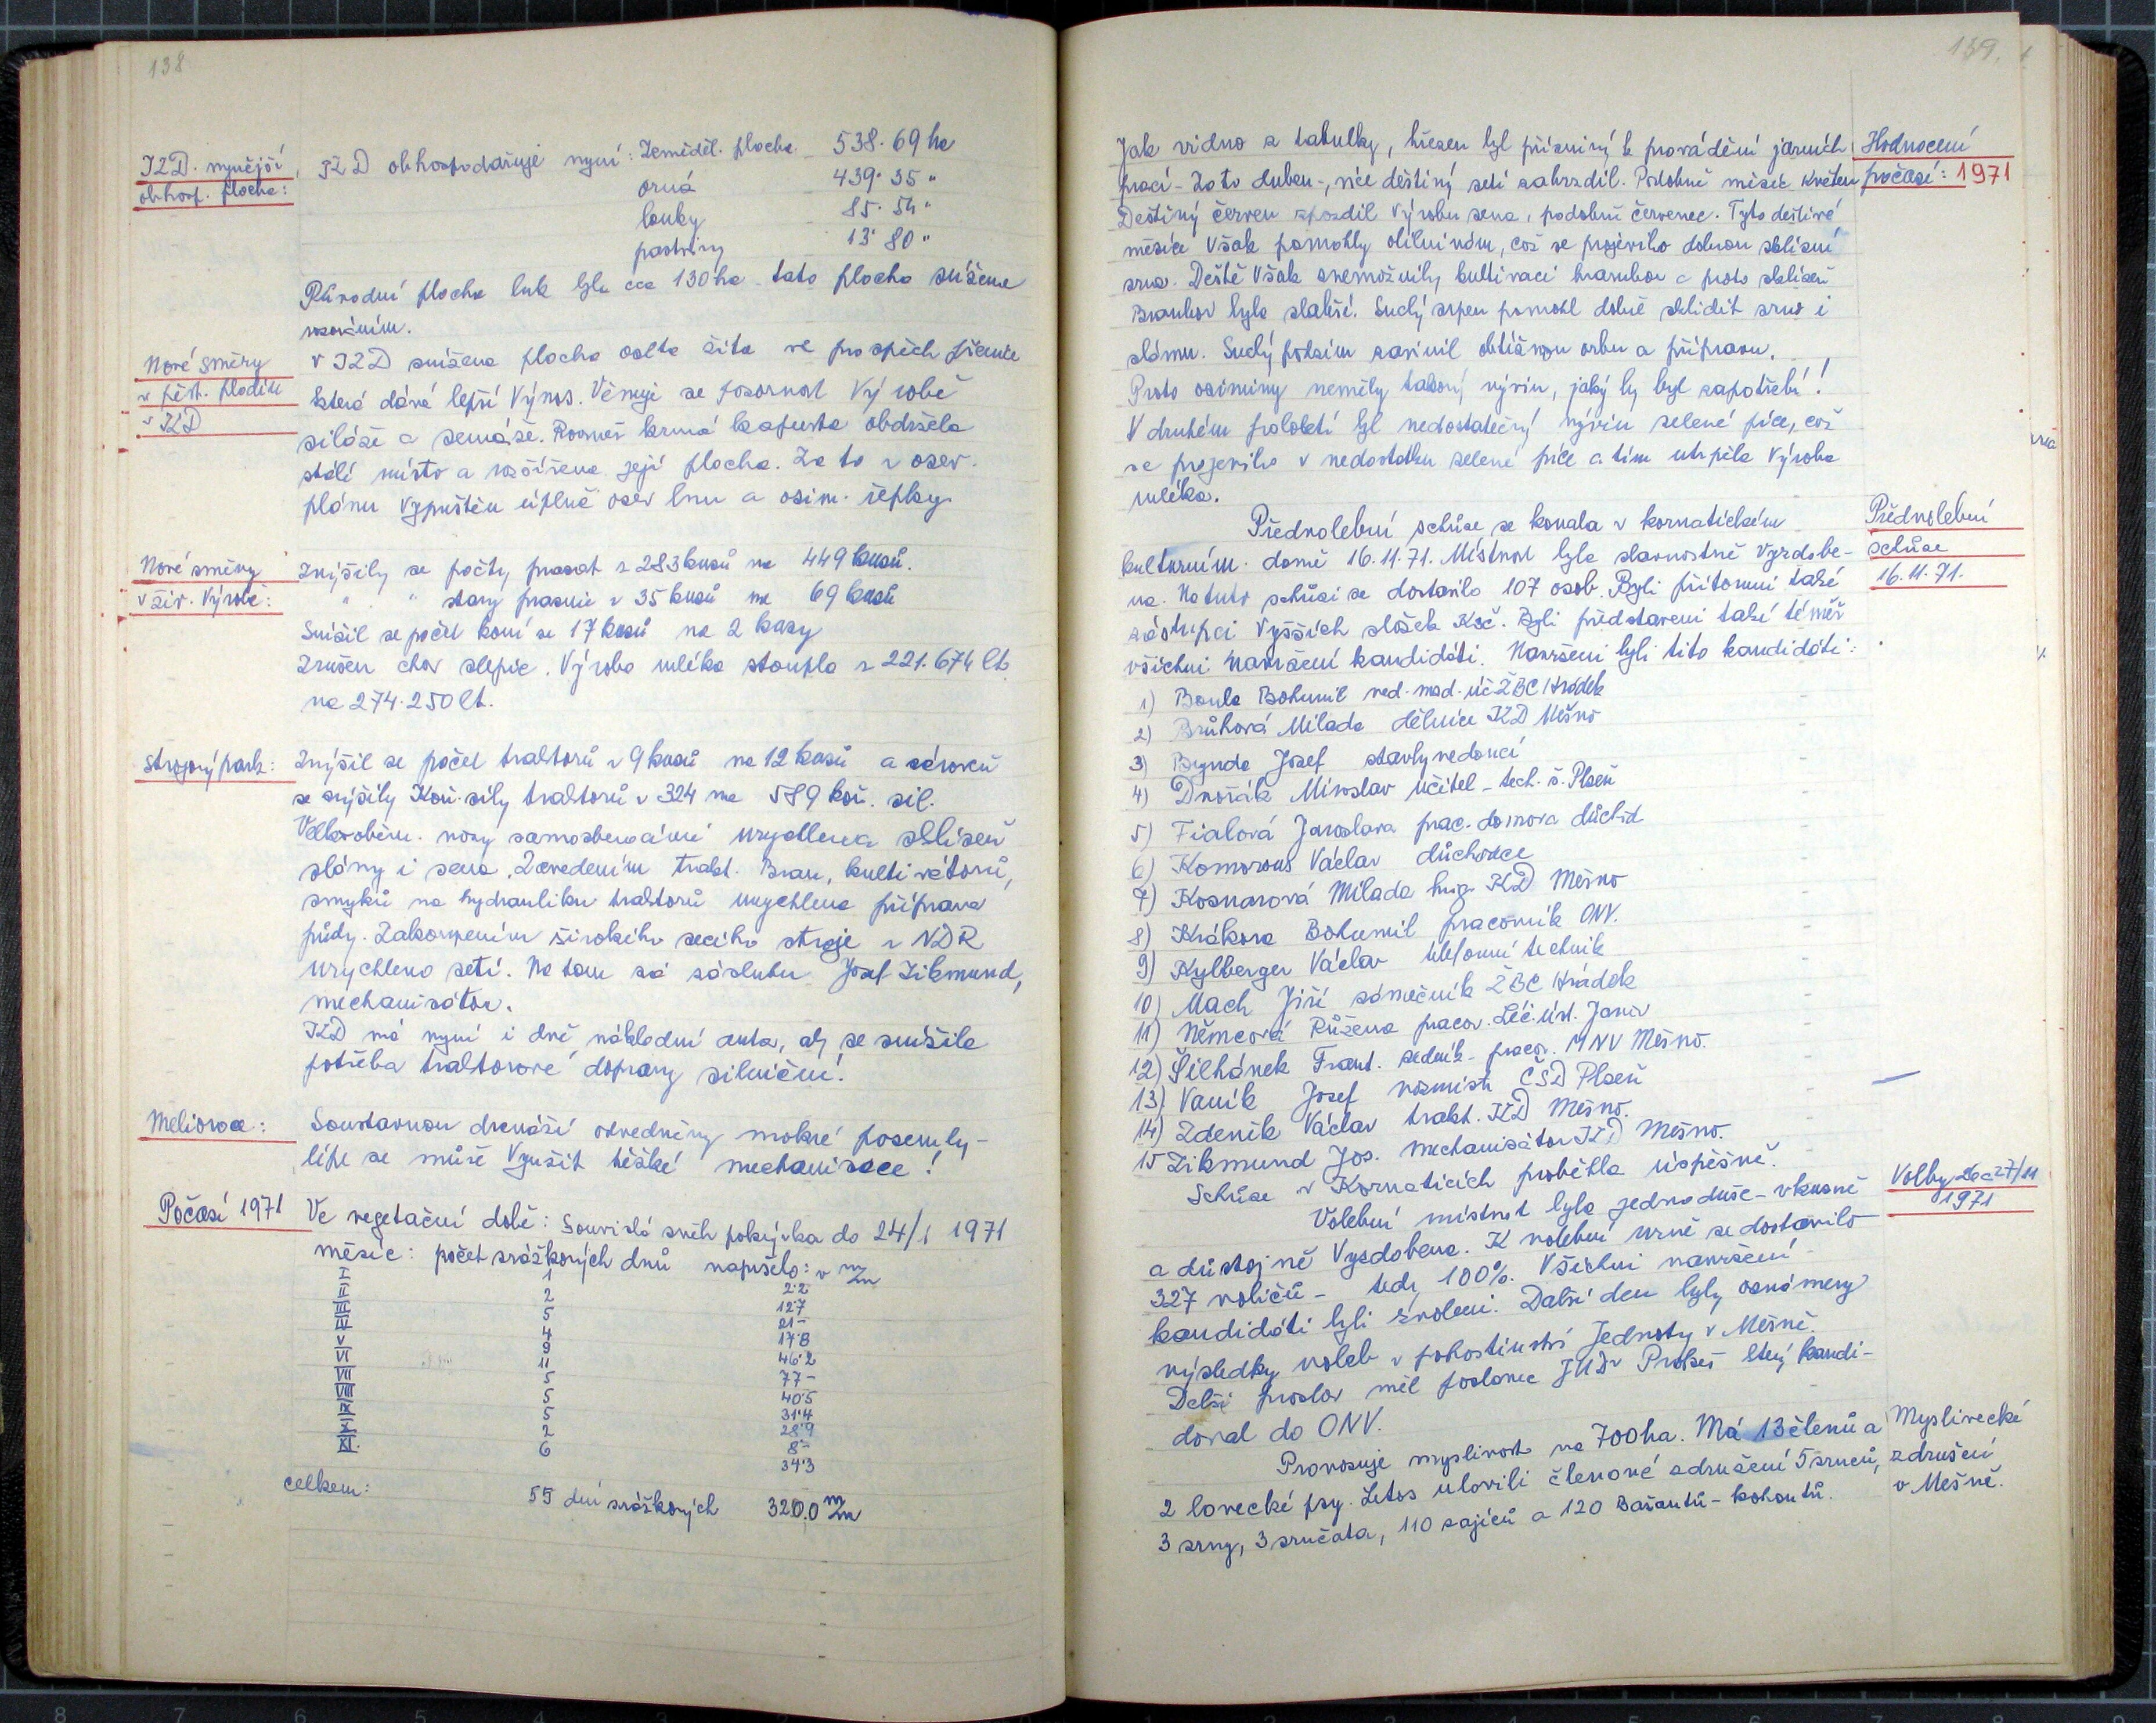 138
JZD. nynější
obhosp. plocha:
JZD obhospodařuje nyní: Zeměděl. plocha 538.69 ha
orná 439.35 "
louky 85.54 "
pastviny 13.80 "
Původní plocha luk byla cca 130 ha tato plocha snížena
rozoráním.
Nové směry
v pěst. plodin
v JZD
V JZD snížena plocha osetá žita ve prospěch pšenice
která dává lepší výnos. Věnuje se pozornost výrobě
siláže a senáže. Rovněž krmná kapusta obdržela
stálé místo a rozšířena její plocha. Za to z osev.
plánu vypuštěn úplně osev lnu a ozim. řepky.
Nové směry
v živ. výrobě:
Zvýšily se počty prasat z 283 kusů na 449 kusů.
" " starý prasnic z 35 kusů na 69 kusů
Snížil se počet koní ze 17 kusů na 2 kusy
Zrušen chov slepic. Výroba mléka stoupla z 221.674 lt.
na 274.250 lt.
Strojový park:
Zvýšil se počet traktorů z 9 kusů na 12 kusů a zároveň
se zvýšily Koň. síly traktorů z 324 na 589 koň. sil.
Velkooběm. vozy samosběracími urychlena sklizeň
slámy i sena. Zavedením trakt. Bran, kultivátorů,
smyků na hydrauliku traktorů urychlena příprava
půdy. Zakoupením širokého secího stroje z NDR
urychleno setí. Na tom má zásluhu Josef Zikmund,
mechanisátor.
JZD má nyní i dvě nákladní auta, aby se snížila
potřeba traktorové dopravy silniční!
Meliorace:
Soustavnou drenáží odvedněny mokré pozemky-
lépe se může využít těžké mechanisace!
Počasí 1971
Ve vegetační době: Souvislá sněh. pokrývka do 24/1 1971
měsíc: počet srážkových dnů napršelo: v m/m
I 1 2.2
II 2 12.7
III 5 21-
IV 4 17.8
V 9 46.2
VI 11 77-
VII 5 40.5
VIII 5 31.4
IX 5 28.9
X 2 8-
XI. 6 34.3
celkem: 55 dní srážkových 320.0 m/m
139.
Hodnocení
počasí: 1971
Jak vidno z tabulky, březen byl příznivý k provádění jarních
prací - Zato duben-, více deštivý setí zabrzdil. Podobně měsíc květen
Deštivý červen zpozdil výrobu sena, podobně červenec. Tyto deštivé
měsíce však pomohly obilninám, což se projevilo dobrou sklizní
zrna. Deště však znemožnily kultivaci brambor a proto sklizeň
Brambor byla slabší. Suchý srpen pomohl dobně sklidit zrno i
slámu. Suchý podzim zavinil obtížnou orbu a přípravu.
Proto ozimíny neměly takový vývin, jaký by byl zapotřebí!
V druhém pololetí byl nedostatečný vývin zelené píce, což
se projevilo v nedostatku zelené píce a tím utrpěla výroba
mléka.
Předvolební
schůze
16.11.71.
Předvolební schůze se konala v kornatickém
kulturním domě 16.11.71. Místnost byla slavnostně vyzdobe-
na. Na tuto schůzi se dostavilo 107 osob. Byli přítomni také
zástupci vyšších složek Ksč. Byli představeni také téměř
všichni navržení kandidáti. Navrženi byli tito kandidáti:
1) Boula Bohumil ved. mzd. úč ZBC Hrádek
2) Brůhová Milada dělnice JZD Mešno
3) Brynda Josef stavbyvedoucí
4) Dvořák Miroslav učitel - tech. š. Plzeň
5) Fialová Jaroslava prac. domova důchod
6) Komorous Václav důchodce
7) Kosnarová Milada hyg. JZD Mešno
8) Krákora Bohumil pracovník ONV.
9) Kylberger Václav telefonní technik
10) Mach Jiří zámečník ZBC Hrádek
11) Němcová Růžena pracov. Léč. úst. Janov
12) Šilhánek Frant. zedník - pracov. MNV Mešno.
13) Vaník Josef vozmistr ČSD Plzeň
14) Zdeník Václav trakt. JZD Mešno.
15 Zikmund Jos. mechanisátor JZD Mešno.
Schůze v Kornaticích proběhla úspěšně.
Volby 26 a 27/11
1971
Volební místnost byla jednoduše - vkusně
a důstojně vyzdobena. K volební urně se dostavilo
327 voličů - tedy 100%. Všichni navržení
kandidáti byli zvoleni. Další den byly oznámeny
výsledky voleb v pohostinství Jednoty v Mešně.
Delší proslov měl poslanec JUDr Prokeš který kandi-
doval do ONV.
Myslivecké
združení
v Mešně.
Provozuje myslivost na 700 ha. Má 13 členů a
2 lovecké psy. Letos ulovili členové združení 5 srnců,
3 srny, 3 srnčata, 110 zajíců a 120 Bažantů - kohoutů.